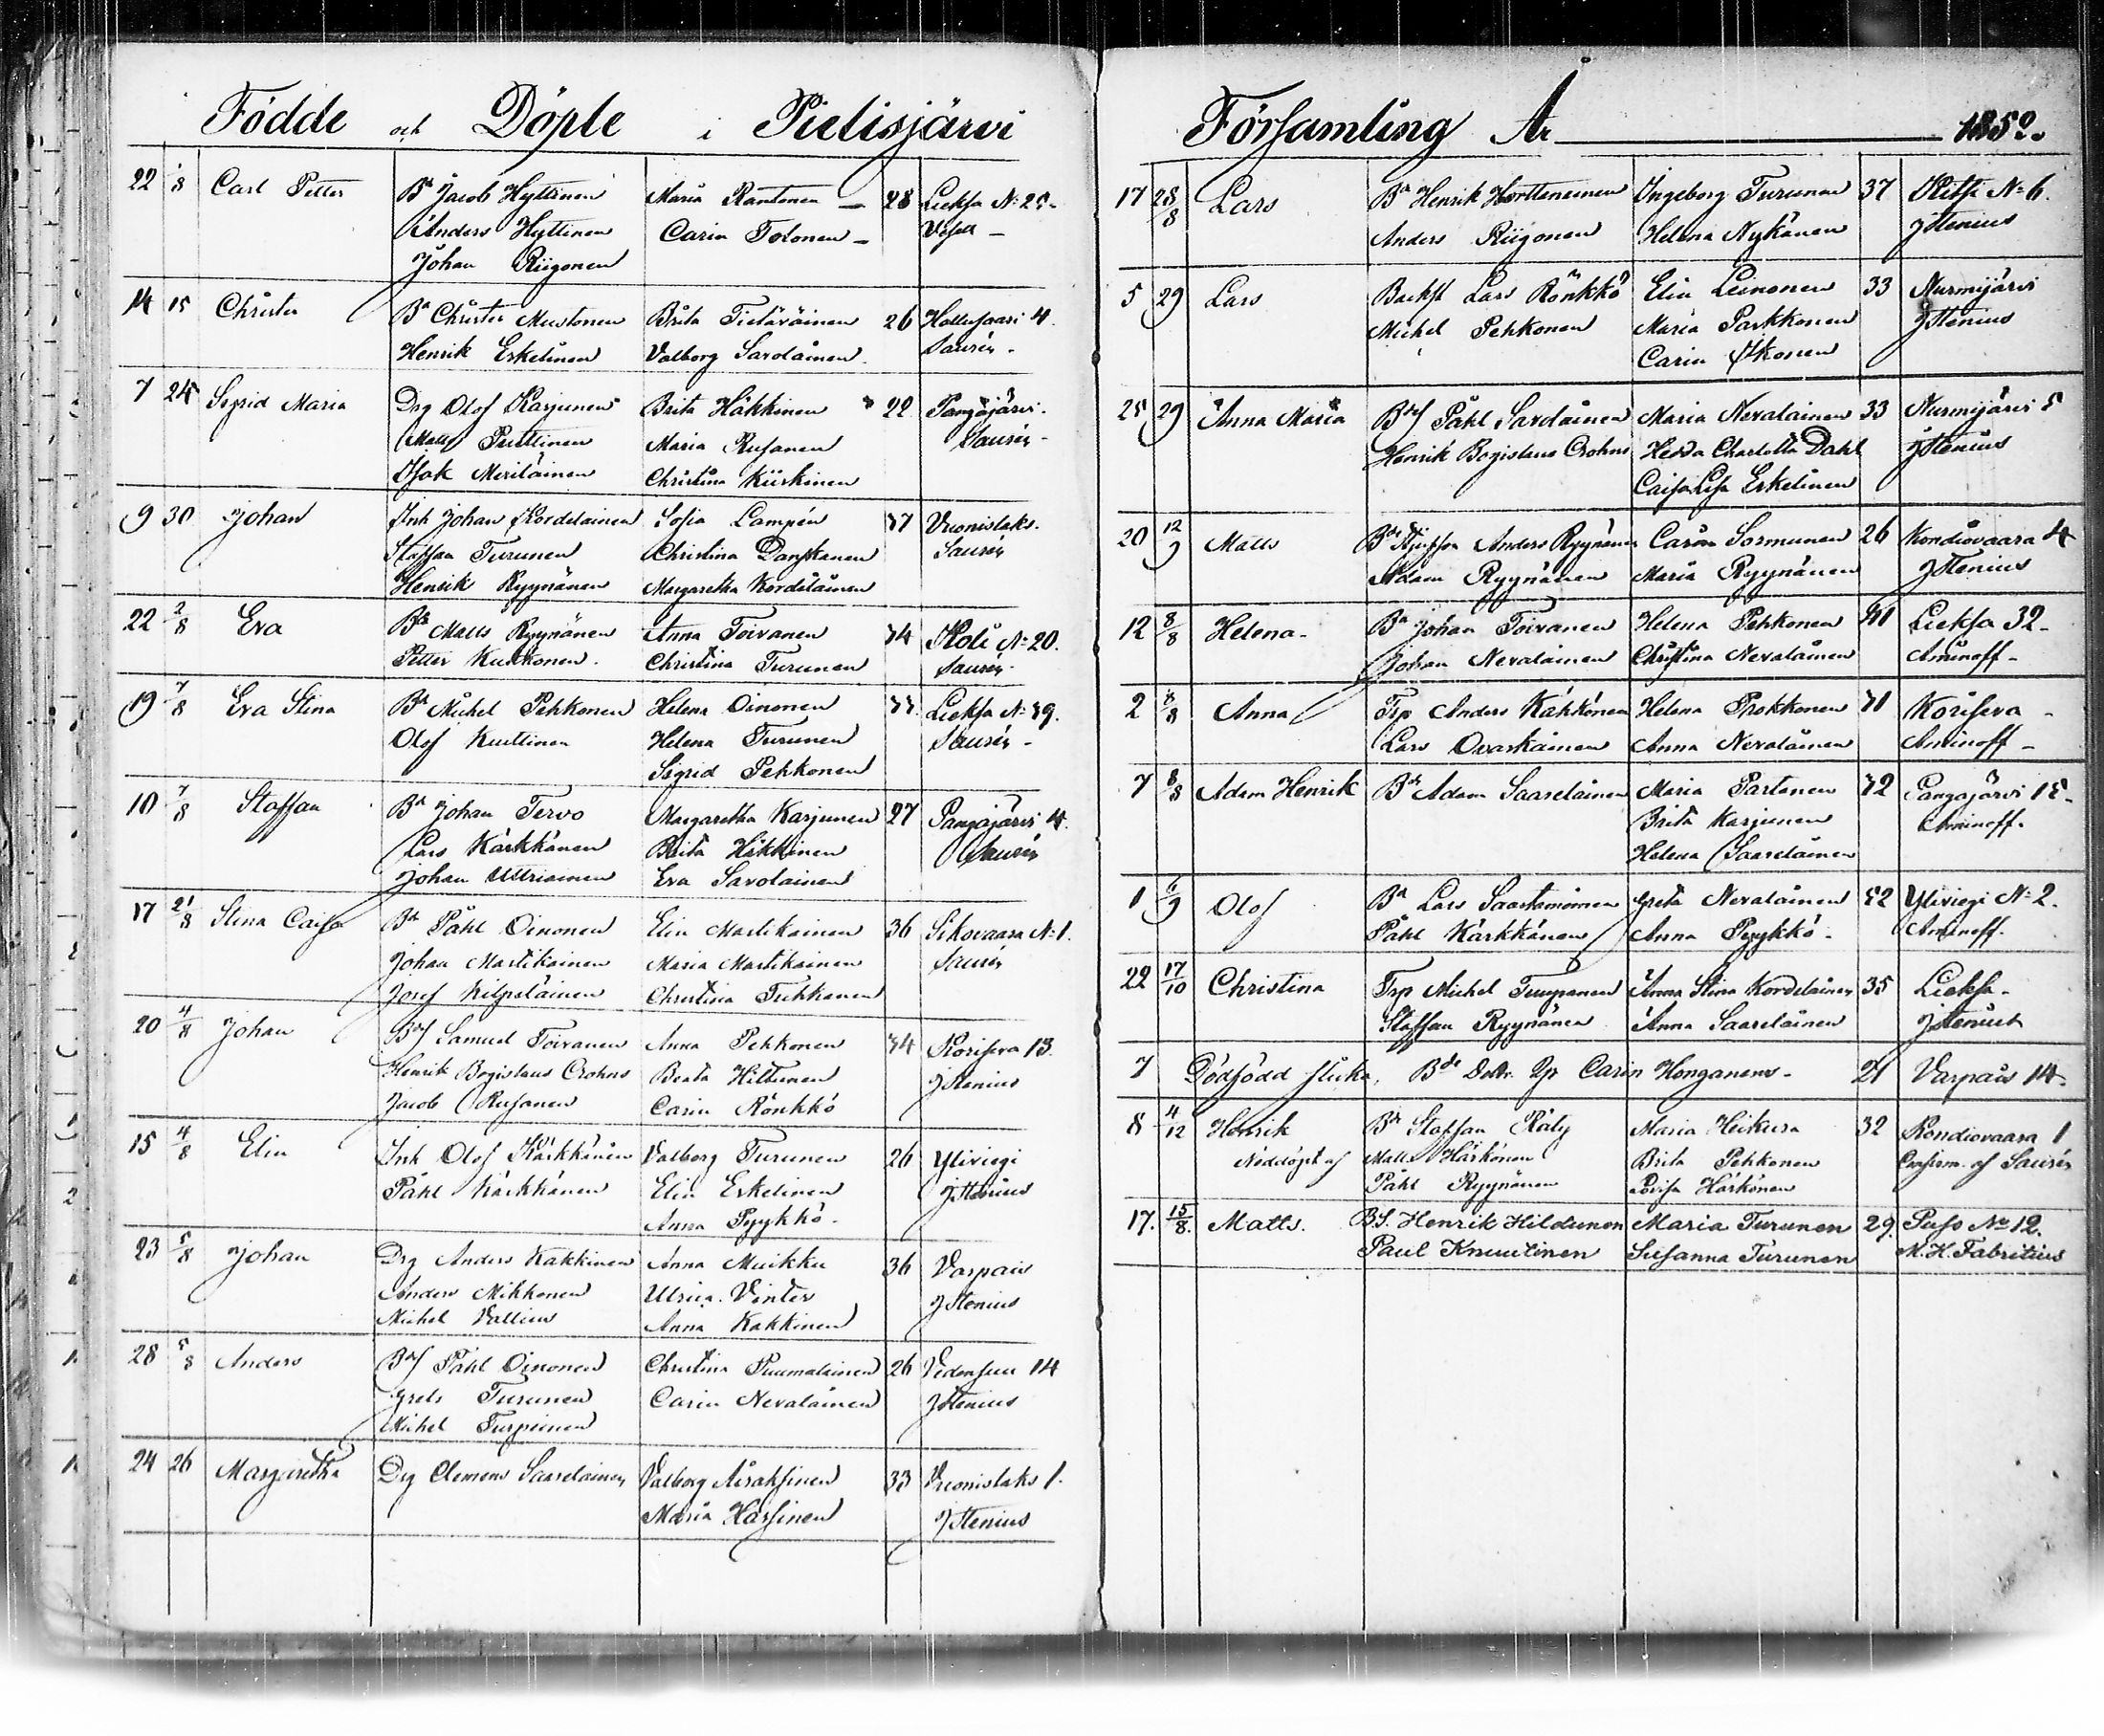 Födde och Döpte i Pielisjärvi
22 1/8 Carl Petter Bd Jacob Hyttinen Maria Rantonen 28 Lieksa No 25
Anders Hyttinen Carin Tolonen
Johan Riigonen
14 15 Christer Bd Christer Mustonen Brita Tietäväinen 26 Hattusaari 4.
Henrik Eskelinen Valborg Savolainen Saurén
7 24 Sigrid Maria Drg Olof Karjunen Brita Häkkinen 22 Pangajärvi
Matts Purttinen Maria Rusanen Saurén
Isak Meriläinen Christina Kiiskinen
9 30 Johan Inh Johan Kordelainen Sofia Lampén 37 Vuonislaks.
Staffan Turunen Christina Danskanen Saurén
Henrik Ryynänen Margaretha Kordelainen
22 2/8 Eva Bd Matts Ryynänen Anna Toivanen 34 Koli No 20.
Petter Kukkonen Christina Turunen Saurén
19 7/8 Eva Stina Bd Michel Pehkonen Helena Oinonen 33 Lieksa No 39.
Olof Kuittinen Helena Turunen Saurén
Sigrid Pehkonen
10 7/8 Staffan Bd Johan Tervo Margaretha Karjunen 27 Pangajärvi 4.
Lars Kärkkänen Brita Häkkinen Saurén
Johan Uttriainen Eva Savolainen
17 21/8 Stina Caisa Bd Påhl Oinonen Elin Martikainen 36 Sikovaara No 1.
Johan Martikainen Maria Martikainen Saurén
Josef Kilpeläinen Christina Tukkanen
20 4/8 Johan Bdf Samuel Toivanen Anna Pehkonen 34 Koriseva 13.
Henrik Bogislaus Crohns Beata Hiltunen J Stenius
Jacob Rusanen Carin Rönkkö
15 4/8 Elin Inh Olof Kärkkänen Valborg Turunen 26 Yliviegi
Påhl Kärkkänen Elin Eskelinen J Stenius
Anna Pyykkö
23 5/8 Johan Drg Anders Kakkinen Anna Muikku 36 Varpais
Anders Mikkonen Ulrica Vinter J Stenius
Michel Vallius Anna Kakkinen
28 5/8 Anders Bdf Påhl Oinonen Christina Puumalainen 26 Vedensuu 14
Grels Turunen Carin Nevalainen J Stenius
Michel Turpeinen
24 26 Margaretha Drg Clemens Saarelainen Valborg Airaksinen 33 Vuonislaks 1.
Maria Hassinen J Stenius
Församling År 1850.
17 28/8 Lars Bd Henrik Horttanainen Ingeborg Turunen 37 Kitsi No 6.
Anders Riigonen Helena Nykänen J Stenius
5 29 Lars Backst Lars Rönkkö Elin Leinonen 33 Nurmijärvi
Michel Pehkonen Maria Parkkonen J Stenius
Carin Ikonen
25 29 Anna Maria Bdf Påhl Savolainen Maria Nevalainen 33 Nurmijärvi 5
Henrik Bogislaus Crohns Hedda Charlotta Dahl J Stenius
Caisa Lisa Eskelinen
20 12/9 Matts Anders Ryynänen Carin Sormunen 26 Kondiovaara 4
Adam Ryynänen Maria Ryynänen J Stenius
12 8/8 Helena Bd Johan Toivanen Helena Pehkonen 41 Lieksa 32
Johan Nevalainen Christina Nevalainen Aminoff
2 8/8 Anna Trp Anders Käkkönen Helena Prokkonen 31 Koriseva
Lars Ovaskainen Anna Nevalainen Aminoff
7 8/8 Adam Henrik Bd Adam Saarelainen Maria Partanen 32 Pangajärvi 15
Brita Karjunen Aminoff.
Helena Saarelainen
1 6/9 Olof Bd Lars Saastamoinen Greta Nevalainen 52 Yliviegi No 2.
Påhl Kärkkänen Anna Pyykkö Aminoff.
22 17/10 Christina Trp Michel Tuupanen Anna Stina Kordelainen 35 Lieksa
Staffan Ryynänen Anna Saarelainen J Stenius
7 Dödfödd flicka, Bde Dottr. Yp Carin Honganens 21 Varpais 14
8 4/12 Henrik Bd Staffan Räty Maria Heikura 32 Kondiovaara 1
Nöddöpt af Matts Härkönen Brita Pehkonen Confirm. af Saurén
Påhl Ryynänen Lovisa Härkönen
17. 15/8. Matts. BS. Henrik Hildunen Maria Turunen 29. Puso No 12.
Paul Knuutinen Susanna Turunen M. H. Fabritius